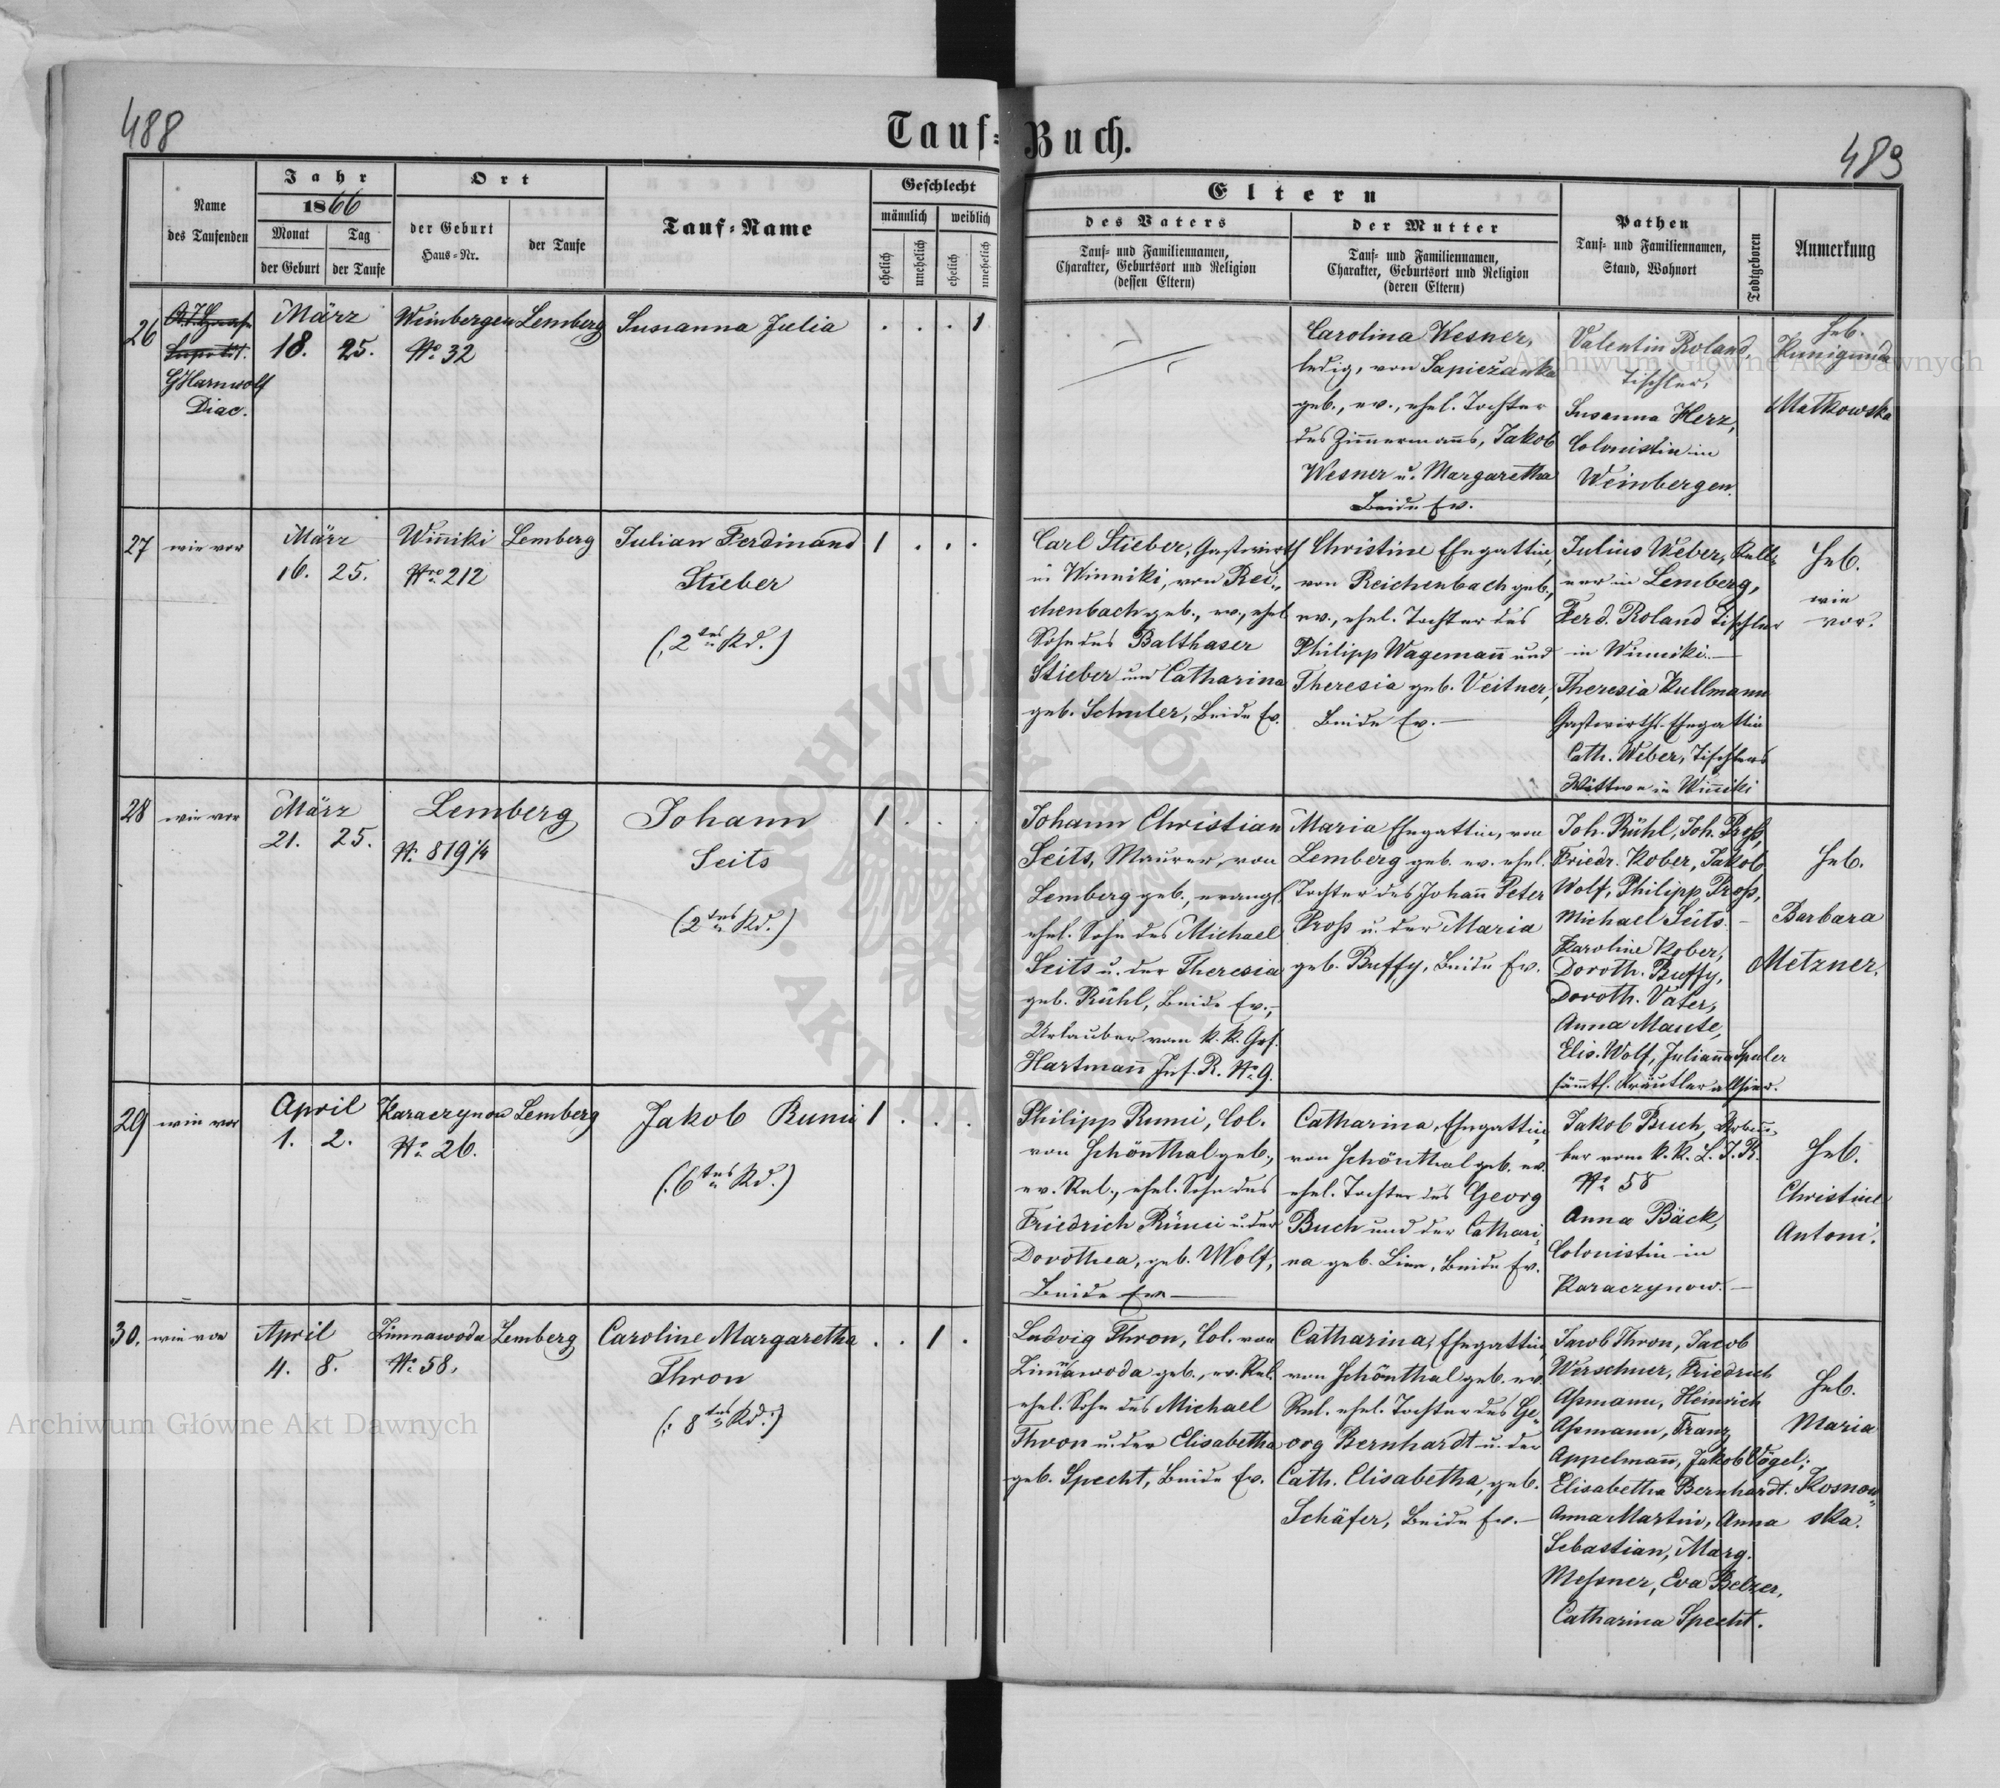 488
Tauf=Buch.
489
Name des Taufenden
Jahr
1866
Monat
Tag
der Geburt
der Taufe
Ort
der Geburt
Haus=Nr.
der Taufe
Tauf=Name
Geschlecht
männlich
weiblich
ehelich
unehelich
ehelich
unehelich
Eltern
des Vaters
Tauf= und Familiennamen,
Charakter, Geburtsort und Religion
(dessen Eltern)
der Mutter
Tauf= und Familiennamen,
Charakter, Geburtsort und Religion
(deren Eltern)
Pathen
Tauf= und Familiennamen,
Stand, Wohnort
Todtgeboren
Anmerkung
26
GHarnwolf
Diac.
März
18. 25.
Weinbergen
No. 32
Lemberg
Susanna Julia
. . . 1
Carolina Wesner,
ledig, von Sapiezanka
geb., ev., ehel. Tochter
des Zimmermanns, Jakob
Wesner u. Margaretha
Beide Ev.
Valentin Roland,
Tischler,
Susanna Herz,
Colonistin in
Weinbergen.
Heb.
Kunigunda
Matkowska
27
wie vor
März
16. 25.
Winniki
Nro 212
Lemberg
Julian Ferdinand
Stieber
(:2tes Kd.)
1 . . .
Carl Stieber, Gastwirth
in Winniki, von Rei=
chenbach geb., ev., ehel
Sohn des Balthaser
Stieber und Catharina
geb. Schuler, Beide Ev.
Christine Ehegattin,
von Reichenbach geb.,
ev., ehel. Tochter des
Philipp Wagemann und
Theresia geb. Veitner,
Beide Ev.—
Julius Weber, Kell=
ner in Lemberg,
Ferd. Roland Tischler
in Winniki.—
Theresia Kullmann
Gastwirths-Ehegattin
Cath. Weber, Tischlers
Wittwe in Winniki
Heb.
wie
vor.
28
wie vor
März
21. 25.
Lemberg
No. 819 1/4
Johann
Seits
(2tes Kd.)
1 . . .
Johann Christian
Seits, Maurer, von
Lemberg geb., evangl.
ehel. Sohn des Michael
Seits u. der Theresia
geb. Rühl, Beide Ev.,
Urlauber vom k. k. Grf.
Hartmann Inf. R. No. 9.
Maria Ehegattin, von
Lemberg geb. ev. ehel.
Tochter des Johann Peter
Proß u. der Maria
geb. Buffy, Beide Ev.
Joh. Rühl, Joh. Proß,
Friedr. Kober, Jakob
Wolf, Philipp Proß,
Michael Seits.—
Karoline Kober,
Doroth. Buffy,
Doroth. Vater,
Anna Maute,
Elis. Wolf, Julianna Spuler
sämmtl. Kräutler allhier.
Heb.
Barbara
Metzner.
29
wie vor
April
1. 2.
Karaczynow
No. 26.
Lemberg
Jakob Rumi
(:6tes Kd.)
1 . . .
Philipp Rumi, Col.
von Schönthal geb.,
ev. Rel., ehel. Sohn des
Friedrich Rümi u. der
Dorothea, geb. Wolf,
Beide Ev.—
Catharina, Ehegattin,
von Schönthal geb. ev.
ehel. Tochter des Georg
Buch und der Cathari=
na geb. Linn, Beide Ev.
Jakob Buch,
ber vom k. k. L. I. R.
No. 58
Anna Bäck,
Colonistin in
Karaczynow.—
Heb.
Christine
Antoni.
30.
wie vor
April
4. 8.
Zimnawoda
No. 58.
Lemberg
Caroline Margaretha
Thron
(: 8tes Kd:)
. . 1 .
Ludvig Thron, Col. von
Zimnawoda geb., ev. Rel.
ehel. Sohn des Michael
Thron u. der Elisabetha
geb. Specht, Beide Ev.
Catharina, Ehegattin,
von Schönthal geb. ev.
Rel. ehel. Tochter des Ge=
org Bernhardt u. der
Cath. Elisabetha, geb.
Schäfer, Beide Ev.—
Jacob Thron, Jacob
Werschner, Friedrich
Aßmann, Heinrich
Aßmann, Franz
Appelmann, Jakob Vögel;
Elisabetha Bernhardt.
Anna Martin, Anna
Sebastian, Marg.
Meßner, Eva Belzer,
Catharina Specht.
Heb.
Maria
Kosnow=
ska.
Archiwum Główne Akt Dawnych
Archiwum Główne Akt Dawnych